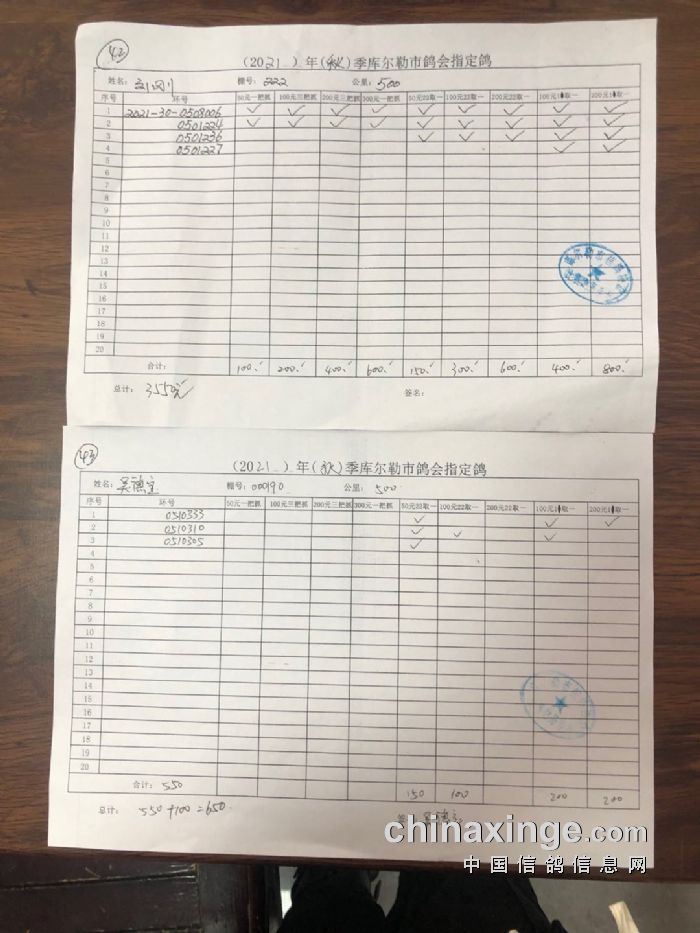 42
（2021 ）年（秋）季库尔勒市鸽会指定鸽
姓名： 棚号：222 公里：500
序号 环号 50元一把抓 100元三把抓 200元三把抓 300元一把抓 50元22取一 100元22取一 200元22取一 100元1取一 200元1取一
1 2021-30-0508006 ✓ ✓ ✓ ✓ ✓ ✓ ✓ ✓ ✓
2 0501224 ✓ ✓ ✓ ✓ ✓ ✓ ✓ ✓ ✓
3 0501236 ✓ ✓ ✓ ✓ ✓
4 0501227 ✓ ✓
5
6
7
8
9
10
11
12
13
14
15
16
17
18
19
20
合计： 100. 200. 400. 600. 150. 300. 600. 400. 800.
总计： 3550元 签名：
43
（2021 ）年（秋）季库尔勒市鸽会指定鸽
姓名：吴 棚号：000190 公里：500
序号 环号 50元一把抓 100元三把抓 200元三把抓 300元一把抓 50元22取一 100元22取一 200元22取一 100元1取一 200元1取一
1 0510333 ✓ ✓ ✓
2 0510310 ✓ ✓ ✓
3 0510305 ✓
4
5
6
7
8
9
10
11
12
13
14
15
16
17
18
19
20
合计：550 150 100 200 200
总计： 550+100=650. 签
chinaxinge.com
中国信鸽信息网